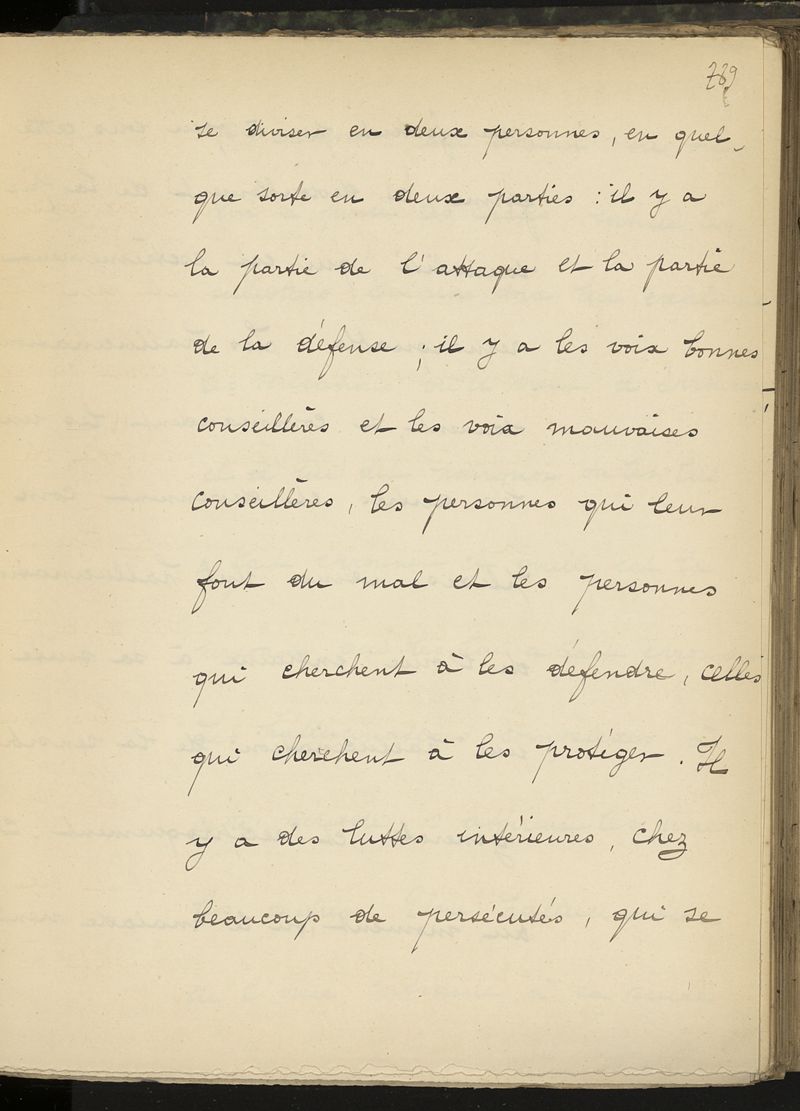 789
se diviser en deux personnes, en quel-
que sorte en deux parties : il y a
la partie de l'attaque et la partie
de la défense ; il y a les voix bonnes
conseillères et les voix mauvaises
conseillères, les personnes qui leur
font du mal et les personnes
qui cherchent à les défendre, celles
qui cherchent à les protéger. Il
y a des luttes intérieures, chez
beaucoup de persécutés, qui se